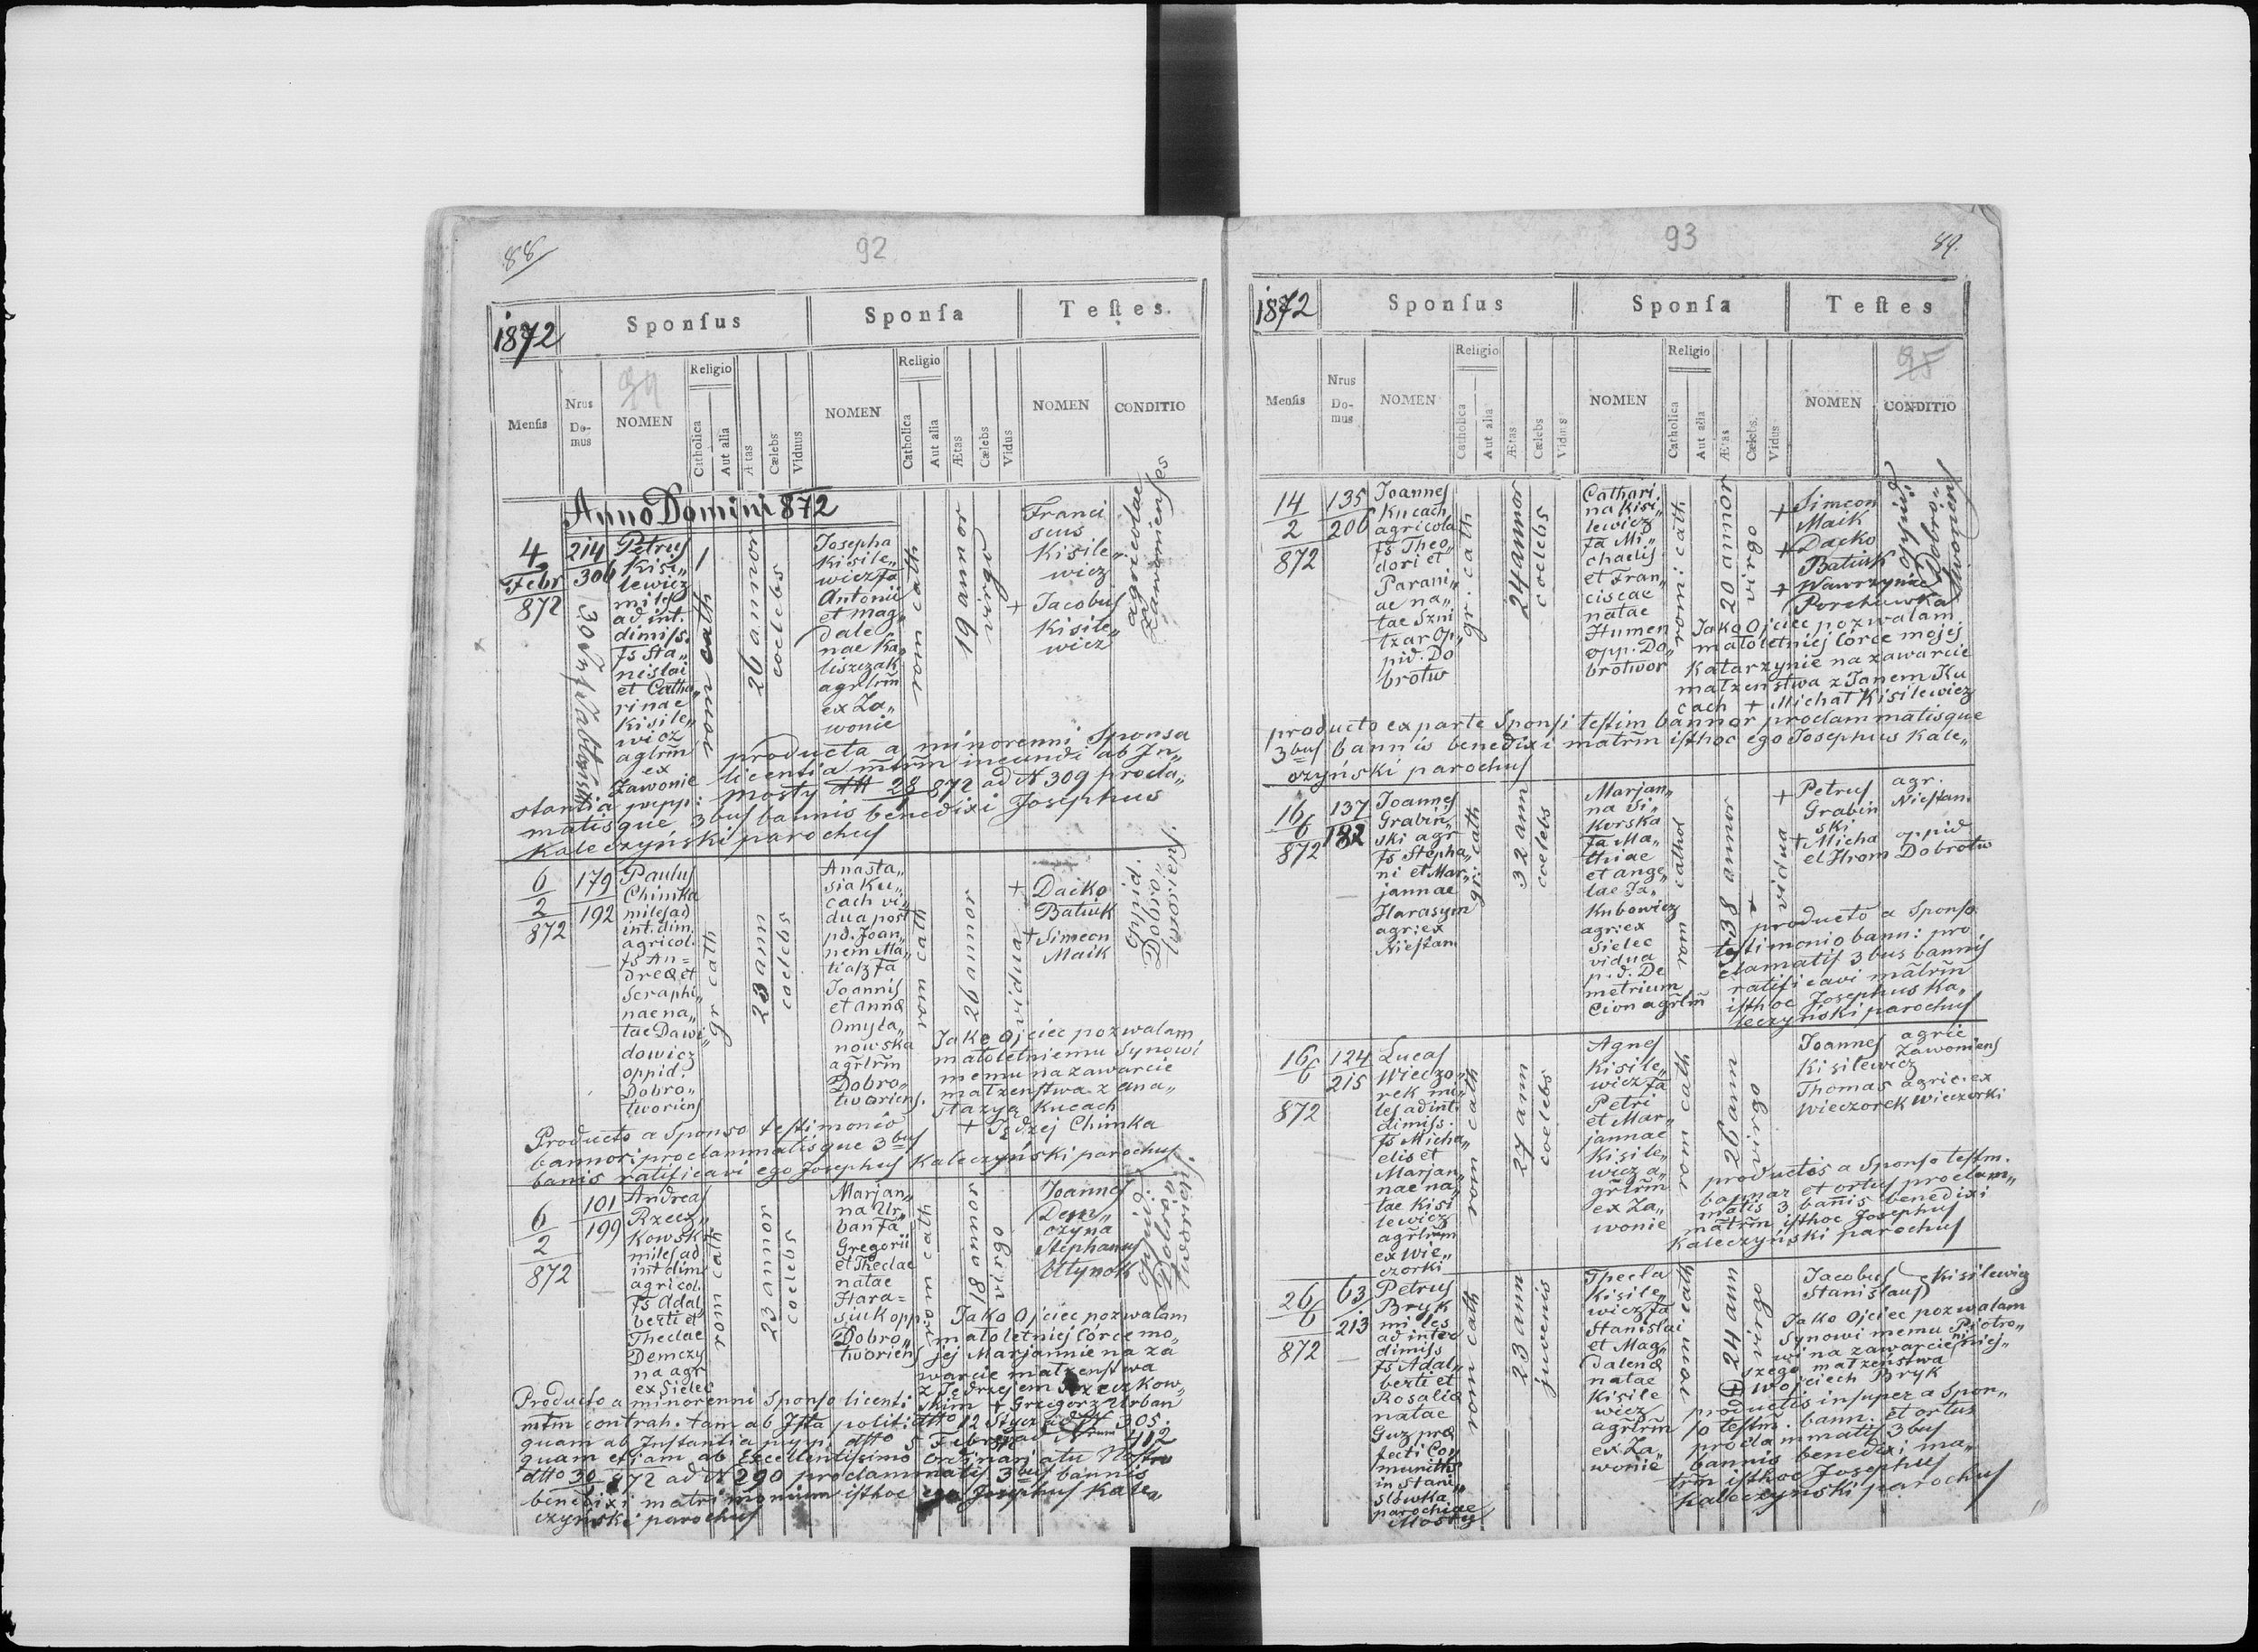 88
92
1872
Sponſus
Sponſa
Teſtes.
Menſis
Nrus
Do-
mus
NOMEN
Religio
Catholica
Aut alia
Ætas
Cælebs
Viduus
NOMEN
Religio
Catholica
Aut alia
Ætas
Cælebs
Vidus
NOMEN
CONDITIO
Anno Domini 872
4
Febr
872
214
306
Petrus
Kisi„
lewicz
miles
ad int.
dimiss.
fs Sta„
nislai
et Catha„
rinae
Kisile„
wicz
agrlrm
ex
Zawonie
rom cath
26 annor
coelebs
Josepha
Kisile„
wicz fa
Antonii
et Mag„
dale„
nae Ka„
liszczak
agrlrm
ex Za„
wonie
rom cath
19 annor
virgo
Franci
scus
Kisile„
wicz
+ Jacobus
Kisile„
wicz
agricolae
Zawonienses
producta a minorenni Sponsa
licentia mtrm ineundi ab Jn„
stantia pupp: Mosty dtt 28/1 872 ad N 309 procla„
matisque 3bus bannis benedixi Josephus
Kaleczyński parochus
6
2
872
179
192
Paulus
Chimka
miles ad
int. dim.
agricol.
fs An=
dreae et
Seraphi„
nae na„
tae Dawi„
dowicz
oppid.
Dobro„
tworiens
gr cath
23 ann
coelebs
Anasta„
sia Ku„
cach vi„
dua post
pd. Joan„
nem Ma„
tiasz fa
Joannis
et Annae
Omyła„
nowska
agrlrm
Dobro„
tworiens.
rom cath
26 annor
vidua
+ Dacko
Batiuk
+ Simeon
Maik
oppid.
Dobro„
tworiens.
Jako Ojciec pozwalam
małoletniemu Synowi
memu na zawarcie
małżenstwa z Ana„
stazyą Kucach
+ Jędzej Chimka
Producto a Sponso testimonio
bannor: proclammatisque 3bus
banis ratificavi ego Josephus Kaleczyński parochus
6
2
872
101
199
Andreas
Rzecz„
kowski
miles ad
int dim
agricol.
fs Adal„
berti et
Theclae
Demczy
na agr
ex Sielec
rom cath
23 annor
coelebs
Marjan„
na Ur„
ban fa
Gregorii
et Theclae
natae
Hara=
siuk opp.
Dobro„
tworiens
rom cath
18 annor
virgo
Joannes
Dem„
czyna
Stephanus
Utynok
oppid.
Dobro„
tworiens.
Jako Ojciec pozwalam
małoletniej Córce mo„
jej Marjannie na za
warcie małżenstwa
z Jędrzejem Rzeczkow„
skim + Grzegorz Urban
Producto a minorenni Sponso licenti
mtm contrah. tam ab Jsta politi dtto 12 Stycz ad N 305.
quam ab Jnstantia pupp. dtto 5 Febr ad Nrum 412
quam etiam ab Excellentissimo Ordinariatu Nostro
dtto 30/1 872 ad N 290 proclammatis 3bus bannis
benedixi matrimonium isthoc ego Josephus Kale„
czyński parochus
93
89.
1872
Sponſus
Sponſa
Teſtes
Menſis
Nrus
Do-
mus
NOMEN
Religio
Catholica
Aut alia
Ætas
Cælebs
Vidus
NOMEN
Religio
Catholica
Aut alia
Ætas
Cælebs.
Vidus
NOMEN
CONDITIO
14
2
872
135
206
Joannes
Kucach
agricola
fs Theo„
dori et
Parani„
ae na„
tae Szni
tzar op„
pid. Do
brotw
gr. cath
24 annor
coelebs
Cathari.
na Kisi„
lewicz
fa Mi„
chaelis
et Fran„
ciscae
natae
Humen
opp. Do„
brotwor
rom: cath
20 annor
virgo
+ Simeon
Maik
+ Dacko
Batiuk
+ Wawrzyniec
Porchawka
oppid.
Dobro„
tworiens
Jako Ojciec pozwalam
małoletniej Córce mojej
Katarzynie na zawarcie
małżenstwa z Janem Ku
cach + Michał Kisilewicz
producto ex parte Sponsi testim bannor proclammatisque
3bus bannis benedixi matrm isthoc ego Josephus Kale„
czyński parochus
16
6
872
137
182
Joannes
Grabin„
ski agr
fs Stepha„
ni et Mar„
jannae
Harasym
agr: ex
Niestan.
gr: cath
32 ann
coelebs
Marjan„
na Si„
korska
fa Ma„
thiae
et Ange„
lae Ja„
kubowicz
agr: ex
Sielec
vidua
p.d. De
metrium
Cion agrlrm
rom cathol
38 annor
vidua
+ Petrus
Grabiń
ski
+ Micha
el Hrom
agr.
Niestan.
oppid
Dobrotw
producto a Sponso
testimonio bann: pro
clamatis 3bus bannis
ratificavi matrm
isthoc Josephus Ka„
leczyński parochus
16
6
872
124
215
Lucas
Wieczo„
rek mi„
les ad int.
dimiss.
fs Micha„
elis et
Marjan„
nae na„
tae Kisi
lewicz
agrlrm
ex Wie„
czorki
rom cath
27 ann
coelebs
Agnes
Kisile„
wicz fa
Petri
et Mar„
jannae
Kisile„
wicz a„
grlrm
ex Za„
wonie
rom cath
26 ann
virgo
Joannes
Kisilewicz
Thomas
Wieczorek
agric
Zawoniens
agric. ex
Wieczorki
productis a Sponso testm.
bannor et ortus proclam„
matis 3 banis benedixi
matrm isthoc Josephus
Kaleczyński parochus
26
6
872
63
213
Petrus
Bryk
miles
ad inter
dimiss
fs Adal„
berti et
Rosaliae
natae
Guz prae
fecti Co„
munitis
in Stani„
slówka
parochiae
Mosty
rom cath
23 ann
juvenis
Thecla
Kisile„
wicz fa
Stanislai
et Mag„
dalenae
natae
Kisile
wicz
agrlrm
ex Za„
wonie
rom cath
24 ann
virgo
Jacobus
Stanislaus
Kisilewicz
Jako Ojciec pozwalam
Synowi memu Piotro„
wi na zawarcie niniej„
szego małżeństwa
+ Wojciech Bryk
productis insuper a Spon„
so testm. bann. et ortus
proclammatis 3bus
bannis benedixi ma„
trm isthoc Josephus
Kaleczyński parochus